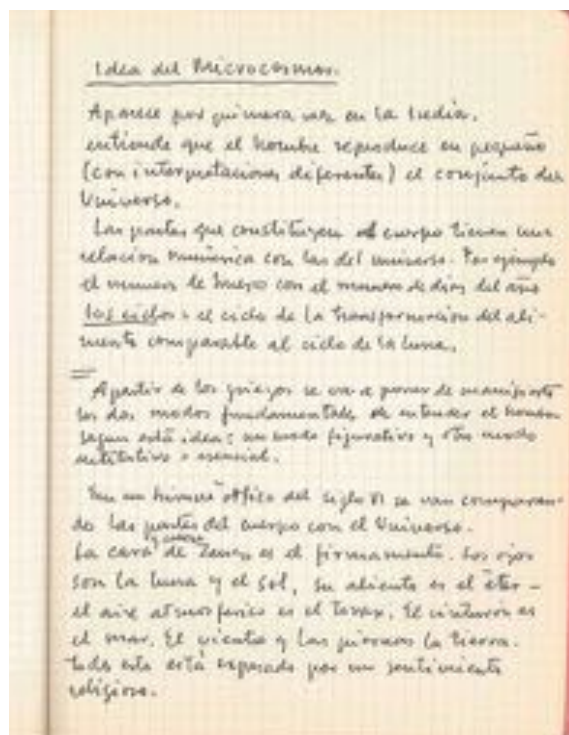 Idea del Microcosmos.
Aparece por primera vez en la India,
entiende que el hombre reproduce en pequeño
(con interpretaciones diferentes) el conjunto del
Universo.
Las partes que constituyen el cuerpo tienen una
relación numérica con las del universo. Por ejemplo
el numero de huesos con el numero de dias del año
los ciclos: el ciclo de la transformación del ali-
mento comparable al ciclo de la luna.
A partir de los griegos se va a poner de manifiesto
los dos modos fundamentales de entender el hombre
segun está idea: un modo figurativo y otro modo
o esencial.
En un himno órfico del siglo VI se van comparan-
do las partes del cuerpo con el Universo.
La cara de Zeus es el firmamento. Los ojos
son la luna y el sol, su aliento es el éter -
el aire atmosferico es el torax. El cinturon es
el mar. El vientre y las piernas la tierra.
todo esto está expresado por un sentimiento
religioso.